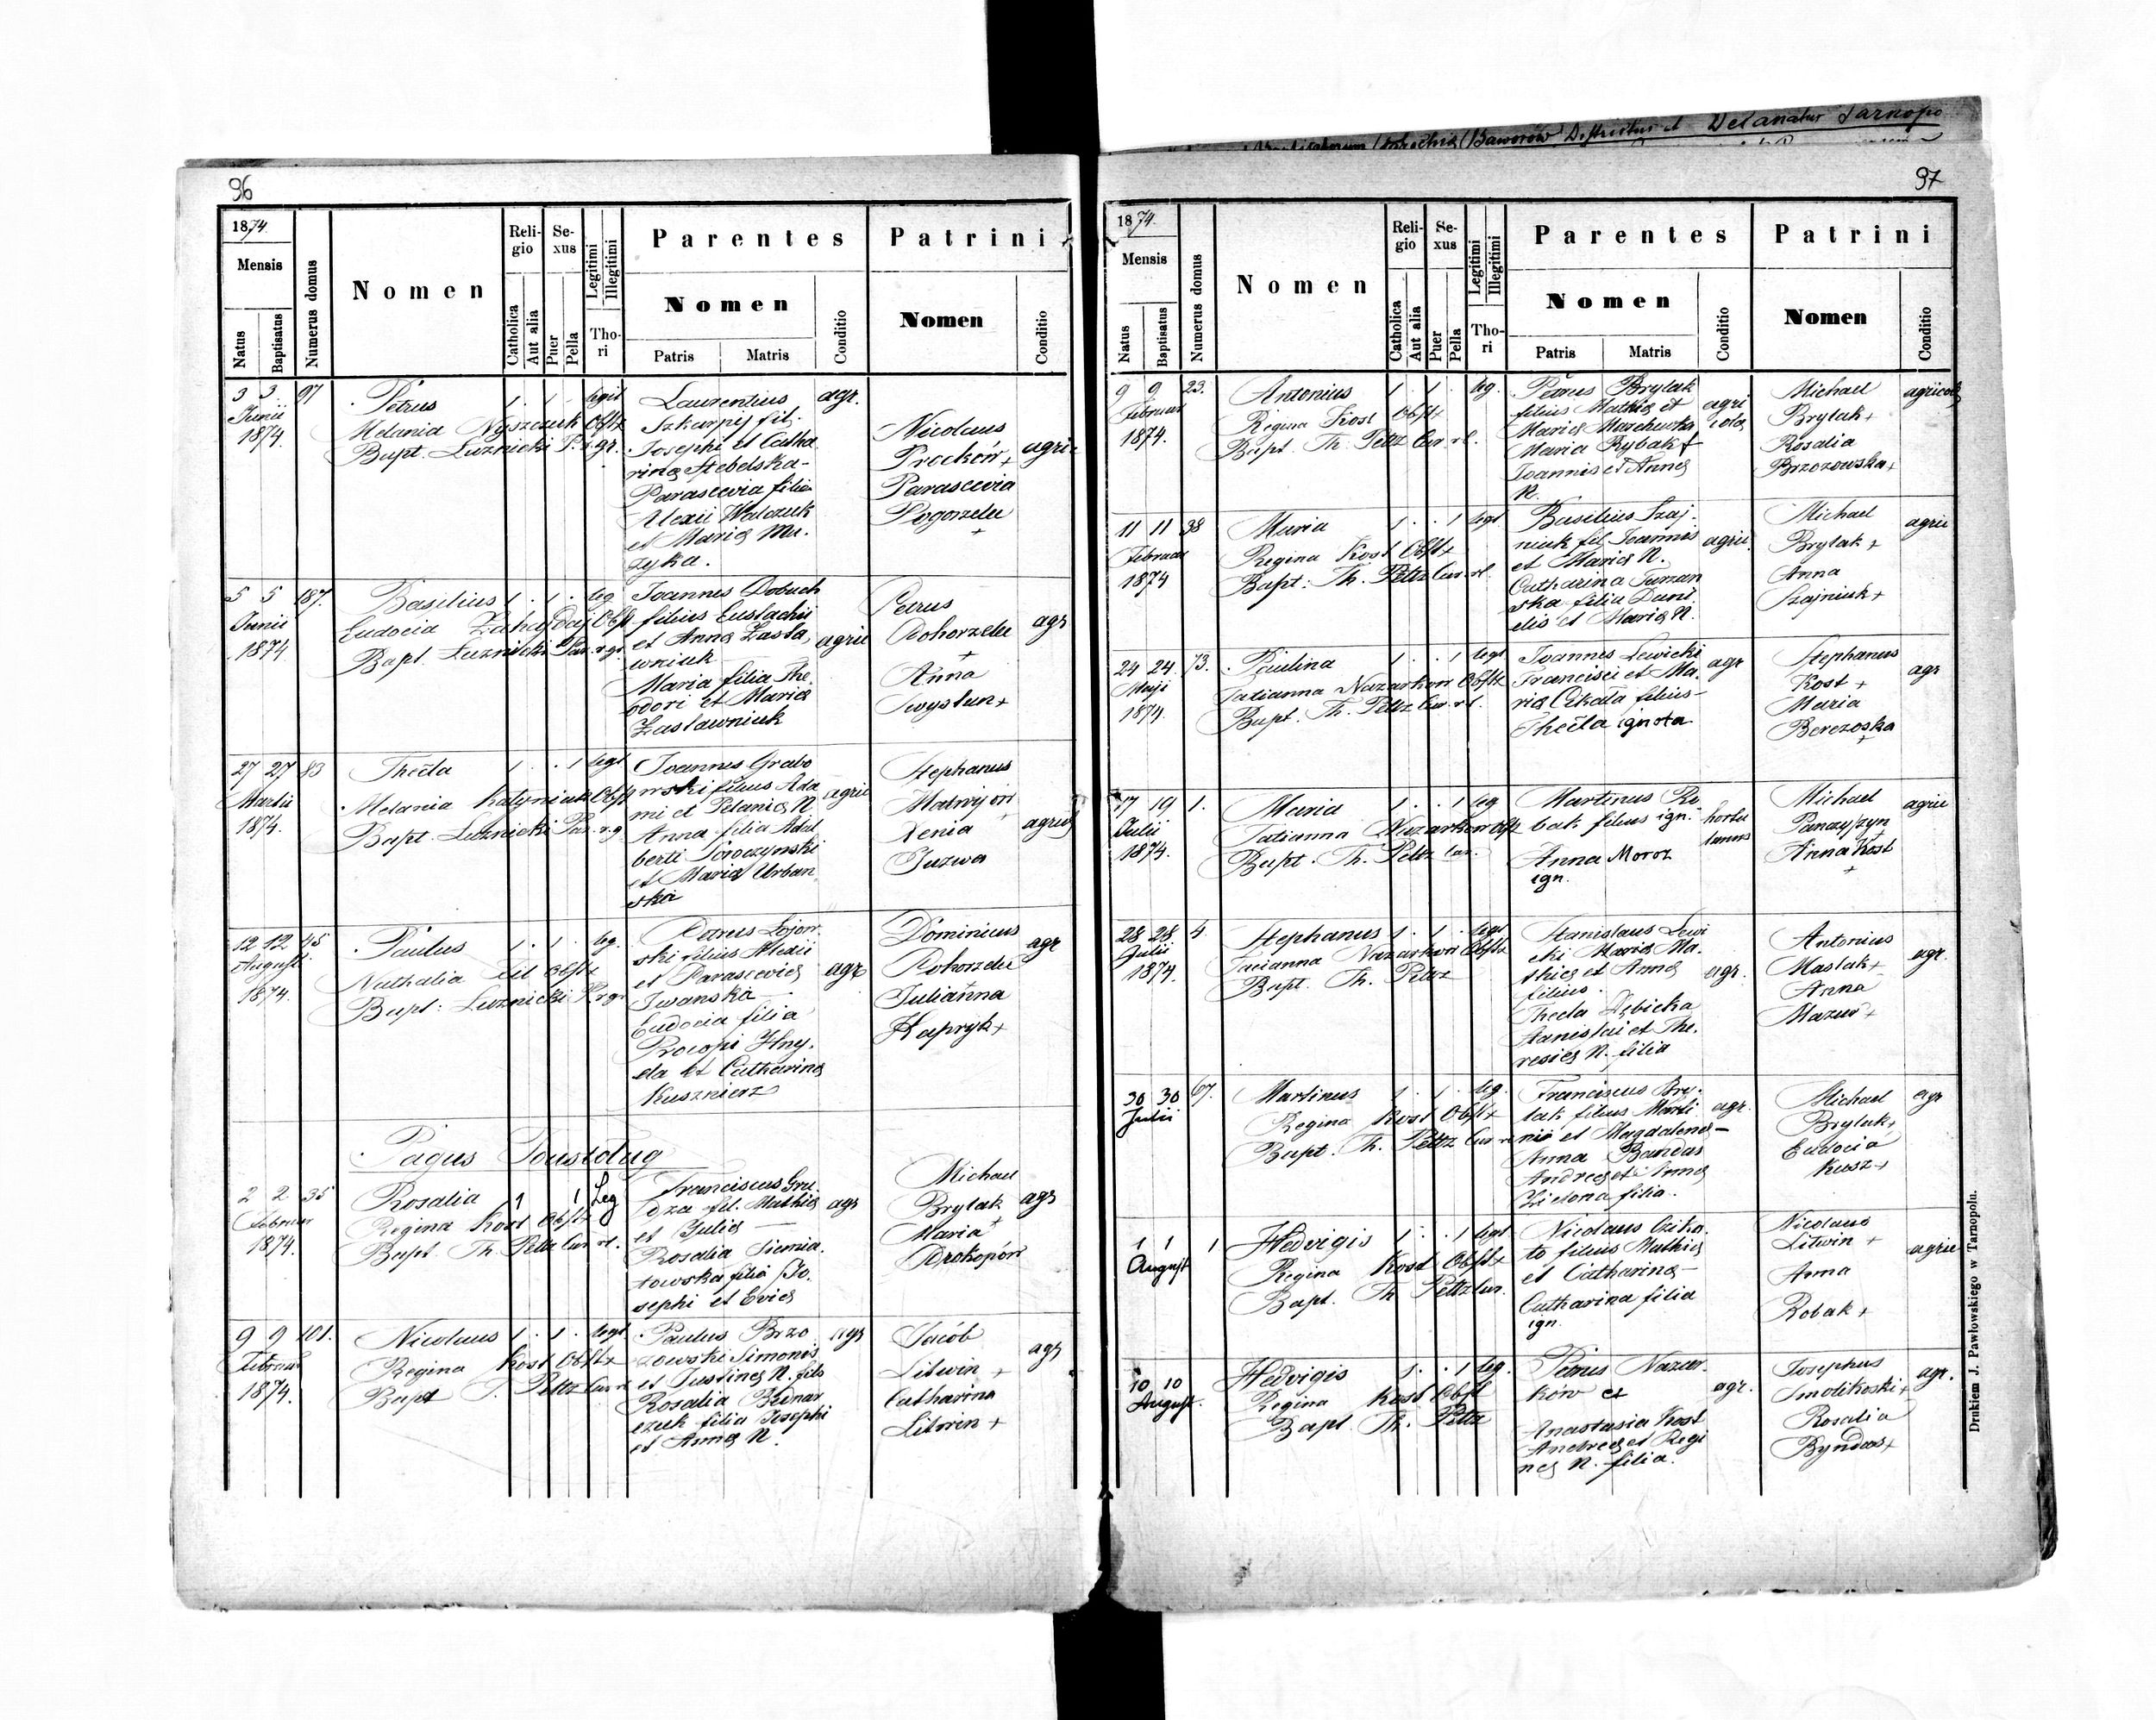 Baworów Districtus et Decanatus Tarnopo
96
1874.
Mensis
Natus
Baptisatus
Numerus domus
Nomen
Reli-
gio
Catholica
Aut alia
Se-
xus
Puer
Pella
Legitimi
Illegitimi
Tho-
ri
Parentes
Nomen
Patris
Matris
Conditio
Patrini
Nomen
Conditio
3 3 97
Junii
1874.
Petrus
Melania Nyszczuk Obstx
Bapt. Luznicki P. r. gr.
1 . 1 . legit
Laurentius
Szkarpij fil.
Josephi et Catha
rina Stebelska-
Parascevia filia
Alexii Walczuk
et Maria Mu.
zyka.
agr.
Nicolaus
Prockón +
Parascevia
Pogorzelec
+
agric
5 5 187.
Junii
1874.
Basilius 1 . 1 . leg
Eudocia Zahajdaj Obst
Bapt. Luznicki Par. r. gr.
Joannes Dobuch
filius Eustachii
et Anna Zasła
wniuk
Maria filia The
odori et Maria
Zasławniuk
agric
Petrus
Pohorzelec
+
Anna
Swystun +
agr
27 27 83
Martii
1874.
Thecla 1 . . 1 legt
Melania Katyniak Obst
Bapt. Luznicki Par. r. g
Joannes Grabo
wski filius Ada
mi et Pelania N
Anna filia Adal
berti Soroczynski
et Maria Urban
ska
agric
Stephanus
Matwijow
Xenia
Juzwa
agric
12 12 45
August.
1874.
Paulus 1 . 1 . leg.
Nathalia Lil Obstx
Bapt: Luznicki P. r. gr
Petrus Łojow
ski filius Alexii
et Parascevia
Iwanska
Eudocia filia
Procopi Hny.
da et Catharina
Kusznierz
agr
Dominicus
Pohorzelec
+
Julianna
Hapryk +
agr
Pagus Toustolug
2 2 35
Februar
1874.
Rosalia 1 1 Leg
Regina Kost Obstx
Bapt. Th. Peltz Cur. rl.
Franciscus Gru.
doza fil. Mathia
et Julia
Rosalia Siemia.
towska filia Jo.
sephi et Evia
agr
Michael
Brylak
+
Maria
Prokopów
agr
9 9 101.
Februar
1874.
Nicolaus 1 . 1 . legt
Regina Kost Obstx
Bapt T. Peltz Cur. r
Paulus Brzo
zowski Simonis
et Justina N. fils
Rosalia Bednar
czuk filia Josephi
et Anna N.
agr
Jacób
Litwin +
Catharina
Litwin +
agr
97
1874.
Mensis
Natus
Baptisatus
Numerus domus
Nomen
Reli-
gio
Catholica
Aut alia
Se-
xus
Puer
Pella
Legitimi
Illegitimi
Tho-
ri
Parentes
Nomen
Patris
Matris
Conditio
Patrini
Nomen
Conditio
9 9 23.
Februar
1874.
Antonius 1 . 1 . leg.
Regina Kost Obstx
Bapt. Th. Peltz Cur. rl.
Petrus Brylak
filius Mathia et
Maria Marchewka
Maria Rybak f
Joannis et Anna
N.
agri
cola
Michael
Brylak +
Rosalia
Brzozowska +
agricola
11 11 38
Februar
1874
Maria 1 . . 1 legt
Regina Kost Obstx
Bapt: Th. Peltz Cur. rl.
Basilius Szaj.
niuk fil Joannis
et Maria N.
Catharina Tuman
ska filia Dani
elis et Maria N.
agric.
Michael
Brylak +
Anna
Szajniuk +
agric
24 24 73.
Maji
1874.
Paulina 1 . . 1 legt
Tatianna Nazarkow Obstx
Bapt. Th. Peltz Cur. rl.
Joannes Lewicki
Francisci et Ma.
ria Cikała filius-
Thecla ignota
agr
Stephanus
Kost +
Maria
Berezoska
+
agr
17 19 1.
Julii
1874.
Maria 1 . . 1 leg
Tatianna Nazarkow Obst
Bapt. Th. Peltz Cur.
Martinus Ro
bak filius ign.
Anna Moroz
ign.
hortu
lanus
Michael
Panczyszyn
+
Anna Kost
+
agric
28 28 4.
Julii
1874.
Stephanus 1 . 1 . legt
Tacianna Nazarkow Obstx
Bapt. Th. Peltz
Stanislaus Lewi
cki Maria Ma.
thia et Anna
filius.
Thecla Dębicka
Stanislai et The.
resia N. filia
agr.
Antonius
Maslak +
Anna
Mazur +
agr.
30 30 67.
Julii
Martinus 1 . 1 . leg.
Regina Kost Obstx
Bapt. Th. Peltz Cur
Franciscus Bry.
lak filius Marti
nis et Magdalena-
Anna Bandas
Andrea et Anna
Zielona filia.
agr.
Michael
Brylak +
Eudocia
Kusz +
agr
1 1 1
August
Hedvigis 1 . . 1 legt
Regina Kost Obstx
Bapt. Th Peltz Cur.
Nicolaus Cziko
to filius Mathia
et Catharina-
Catharina filia
ign.
Nicolaus
Litwin +
Anna
Robak +
agric
10 10
August.
Hedvigis 1 . . 1 leg.
Regina Kost Obst
Bapt Th. Peltz
Petrus Nazar
ków et
Anastasia Kost
Andrea et Regi
na N. filia.
agr.
Josephus
Smolikoski +
Rosalia
Byndas +
agr.
Drukiem J. Pawłowskiego w Tarnopolu.